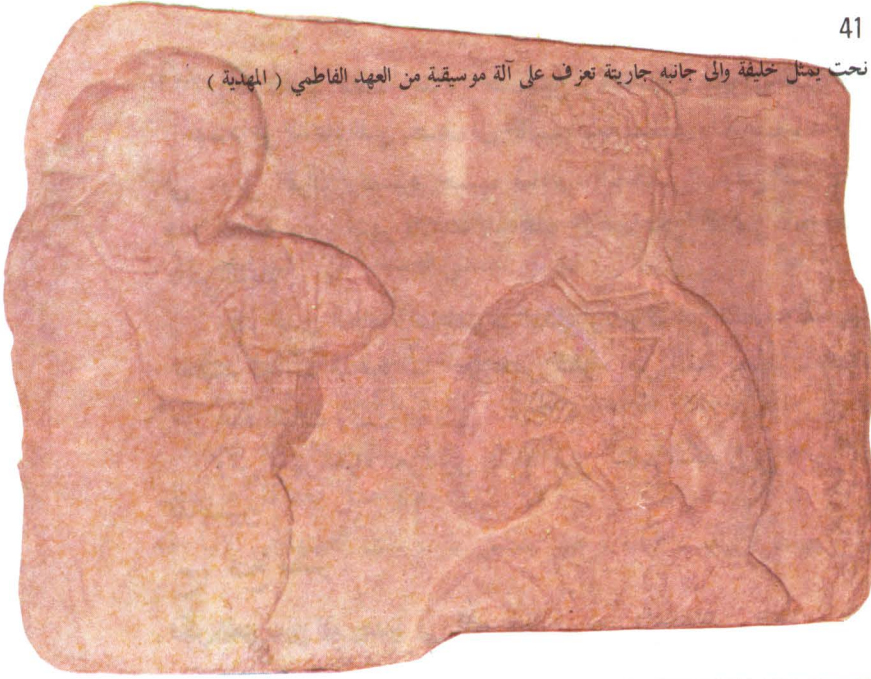 41
نحت يمثل خليفة والى جانبه جاريتة تعزف على آلة موسيقية من العهد الفاطمي ( المهدية )